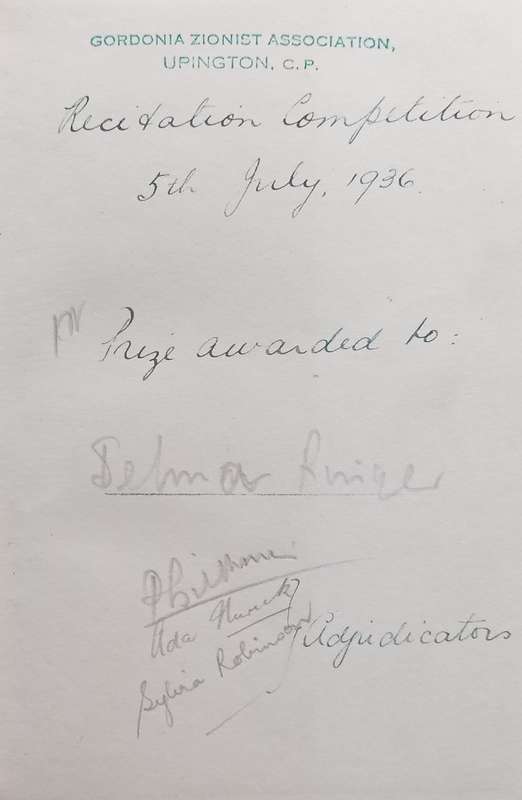 GORDONIA ZIONIST ASSOCIATION,
UPINGTON, C.P.
Recitation Competition
5th July, 1936.
Prize awarded to:
Ada
Sylvia Robinson
Adjudicators